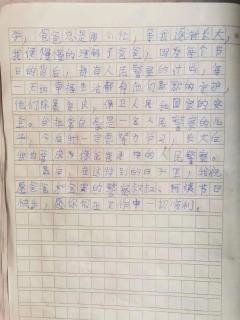 爸爸总是那么忙，等我渐渐长大，
我慢慢的理解了爸爸，因为每个节
日的背后，都有人民警察的付出，每
一天的幸福生活都有他们默默的守护
他们除暴安良，保卫人民和国家的安
全。是一名人民警察的儿
子，今后我一定要努力学习，长大
我也要成为像爸爸一样的人民警察。
最后，在这特别的日子里，我祝
愿爸爸和爸爸的警察叔叔、阿姨节日
快乐，愿你们在工作中一切顺利。